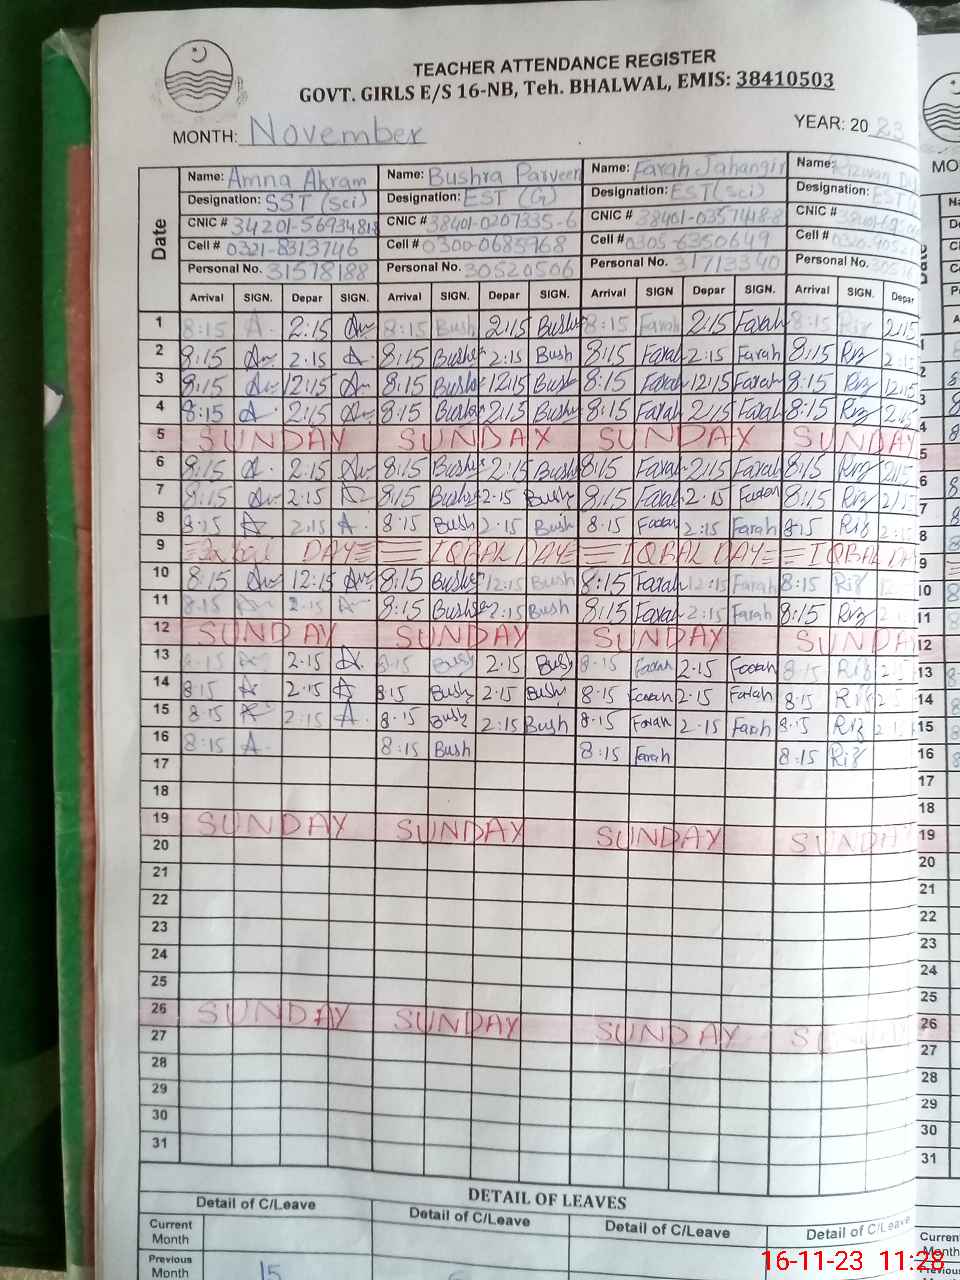 TEACHER ATTENDANCE REGISTER
GOVT. GIRLS E/S 16-NB, Teh. BHALWAL, EMIS: 38410503
MONTH: November YEAR: 2023
Name: Amna Akram Name: Bushra Parveen Name: Farah Jahangir Name: Rizwan
Designation: SST (sci) Designation: EST (G) Designation: EST (sci) Designation: EST
CNIC # CNIC # 38401-0207335-6 CNIC # 38401-0357418-8 CNIC #
Cell # 0321-8313746 Cell # 0300-0685968 Cell # 0305-6350649 Cell #
Personal No. 31578188 Personal No. 30520506 Personal No. 31713340 Personal No.
Date
Arrival SIGN. Depar SIGN. Arrival SIGN. Depar SIGN. Arrival SIGN Depar SIGN. Arrival SIGN. Depar
1 8:15 A 2:15 8:15 Bush 2:15 Bush 8:15 Farah 2:15 Farah 8:15 Riz 2:15
2 8:15 2:15 8:15 Bush 2:15 Bush 8:15 Farah 2:15 Farah 8:15 Riz 2:15
3 8:15 12:15 8:15 Bush 12:15 Bush 8:15 Farah 12:15 Farah 8:15 Riz 12:15
4 8:15 A 2:15 8:15 Bush 2:15 Bush 8:15 Farah 2:15 Farah 8:15 Riz 2:15
5 SUNDAY SUNDAY SUNDAY SUNDAY
6 8:15 A 2:15 8:15 Bush 2:15 Bush 8:15 Farah 2:15 Farah 8:15 Riz 2:15
7 8:15 2:15 8:15 Bush 2:15 Bush 8:15 Farah 2:15 Farah 8:15 Riz 2:15
8 8:15 A 2:15 A 8:15 Bush 2:15 Bush 8:15 Farah 2:15 Farah 8:15 Riz 2:15
9 Iqbal DAY IQBAL DAY IQBAL DAY IQBAL DA
10 8:15 12:15 8:15 Bush 12:15 Bush 8:15 Farah 12:15 Farah 8:15 Riz 12
11 8:15 2:15 8:15 Bush 2:15 Bush 8:15 Farah 2:15 Farah 8:15 Riz 2:
12 SUNDAY SUNDAY SUNDAY SUNDA
13 8:15 A 2:15 A 8:15 Bush 2:15 Bush 8:15 Farah 2:15 Farah 8:15 Riz 2:15
14 8:15 A 2:15 A 8:15 Bush 2:15 Bush 8:15 Farah 2:15 Farah 8:15 Riz 2:15
15 8:15 A 2:15 A 8:15 Bush 2:15 Bush 8:15 Farah 2:15 Farah 8:15 Riz 2:1
16 8:15 A 8:15 Bush 8:15 Farah 8:15 Riz
17
18
19 SUNDAY SUNDAY SUNDAY SUNDA
20
21
22
23
24
25
26 SUNDAY SUNDAY SUNDAY S
27
28
29
30
31
DETAIL OF LEAVES
Detail of C/Leave Detail of C/Leave Detail of C/Leave Detail of C/Leave
Current Month
Previous Month 15
MO
1
2
3
4
5
6
7
8
9
10
11
12
13
14
15
16
17
18
19
20
21
22
23
24
25
26
27
28
29
30
31
Current
Month
Previous
16-11-23 11:28